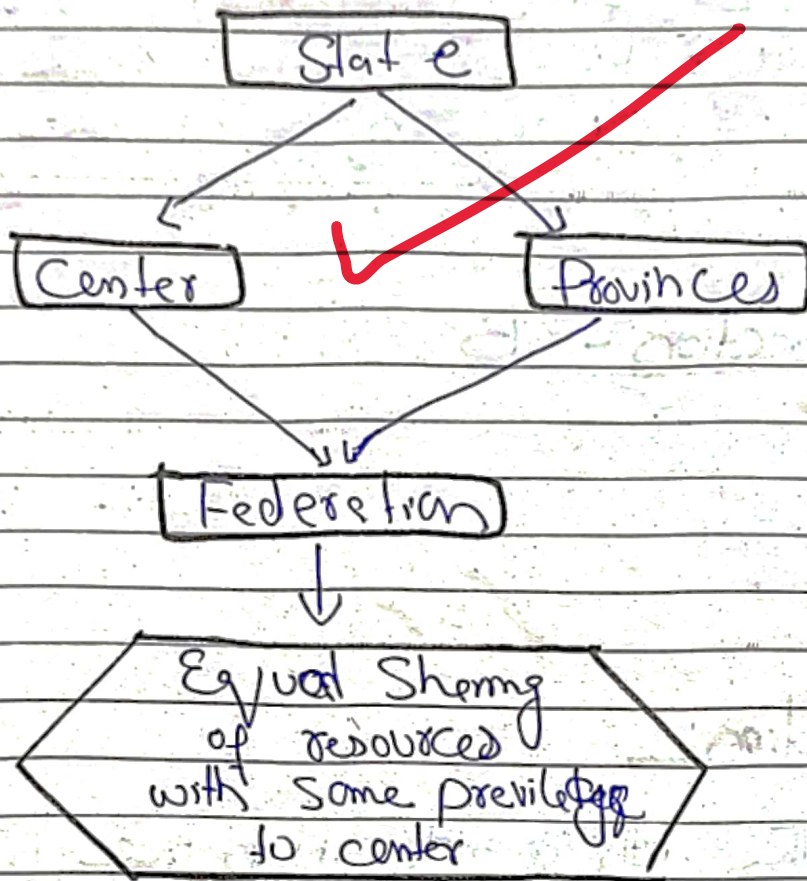 State
Center
Provinces
Federation
Equal Sharing
of resources
with some previlege
to center